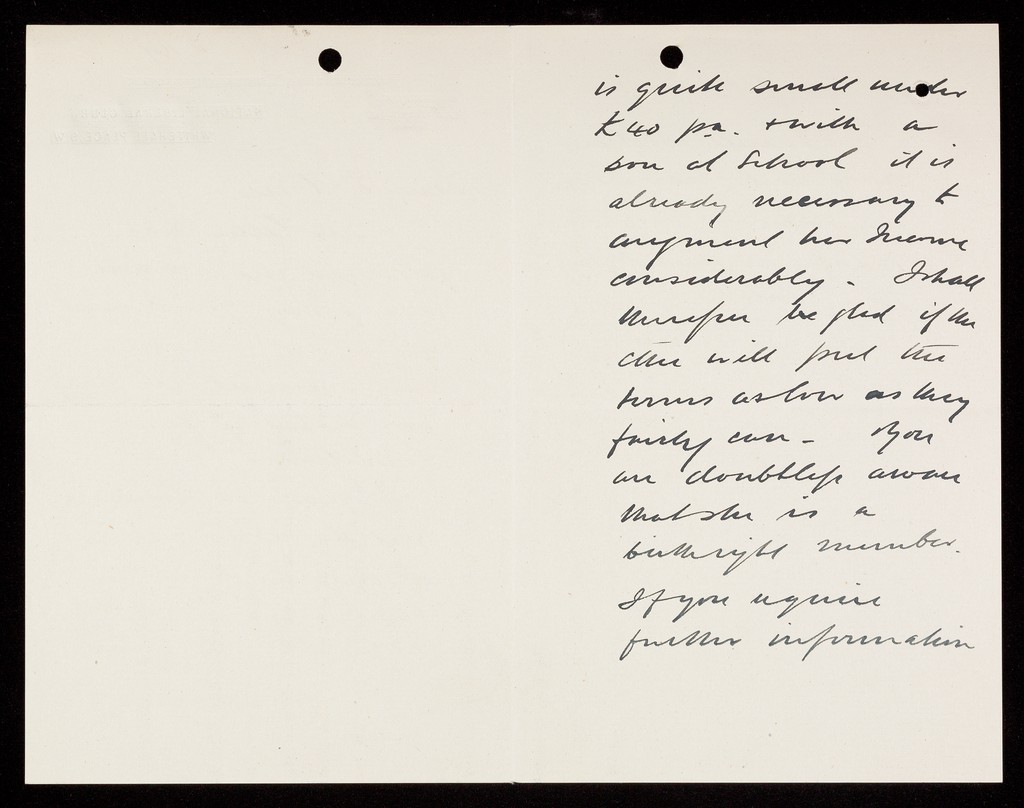 is quite small under
£40 p.a. & with a
son at School it is
already necessary to
augment her Income
considerably - I shall
therefore be glad if the
will put the
terms as low as they
fairly can - You
are doubtless aware
that she is a
birthright member.
If you require
further information